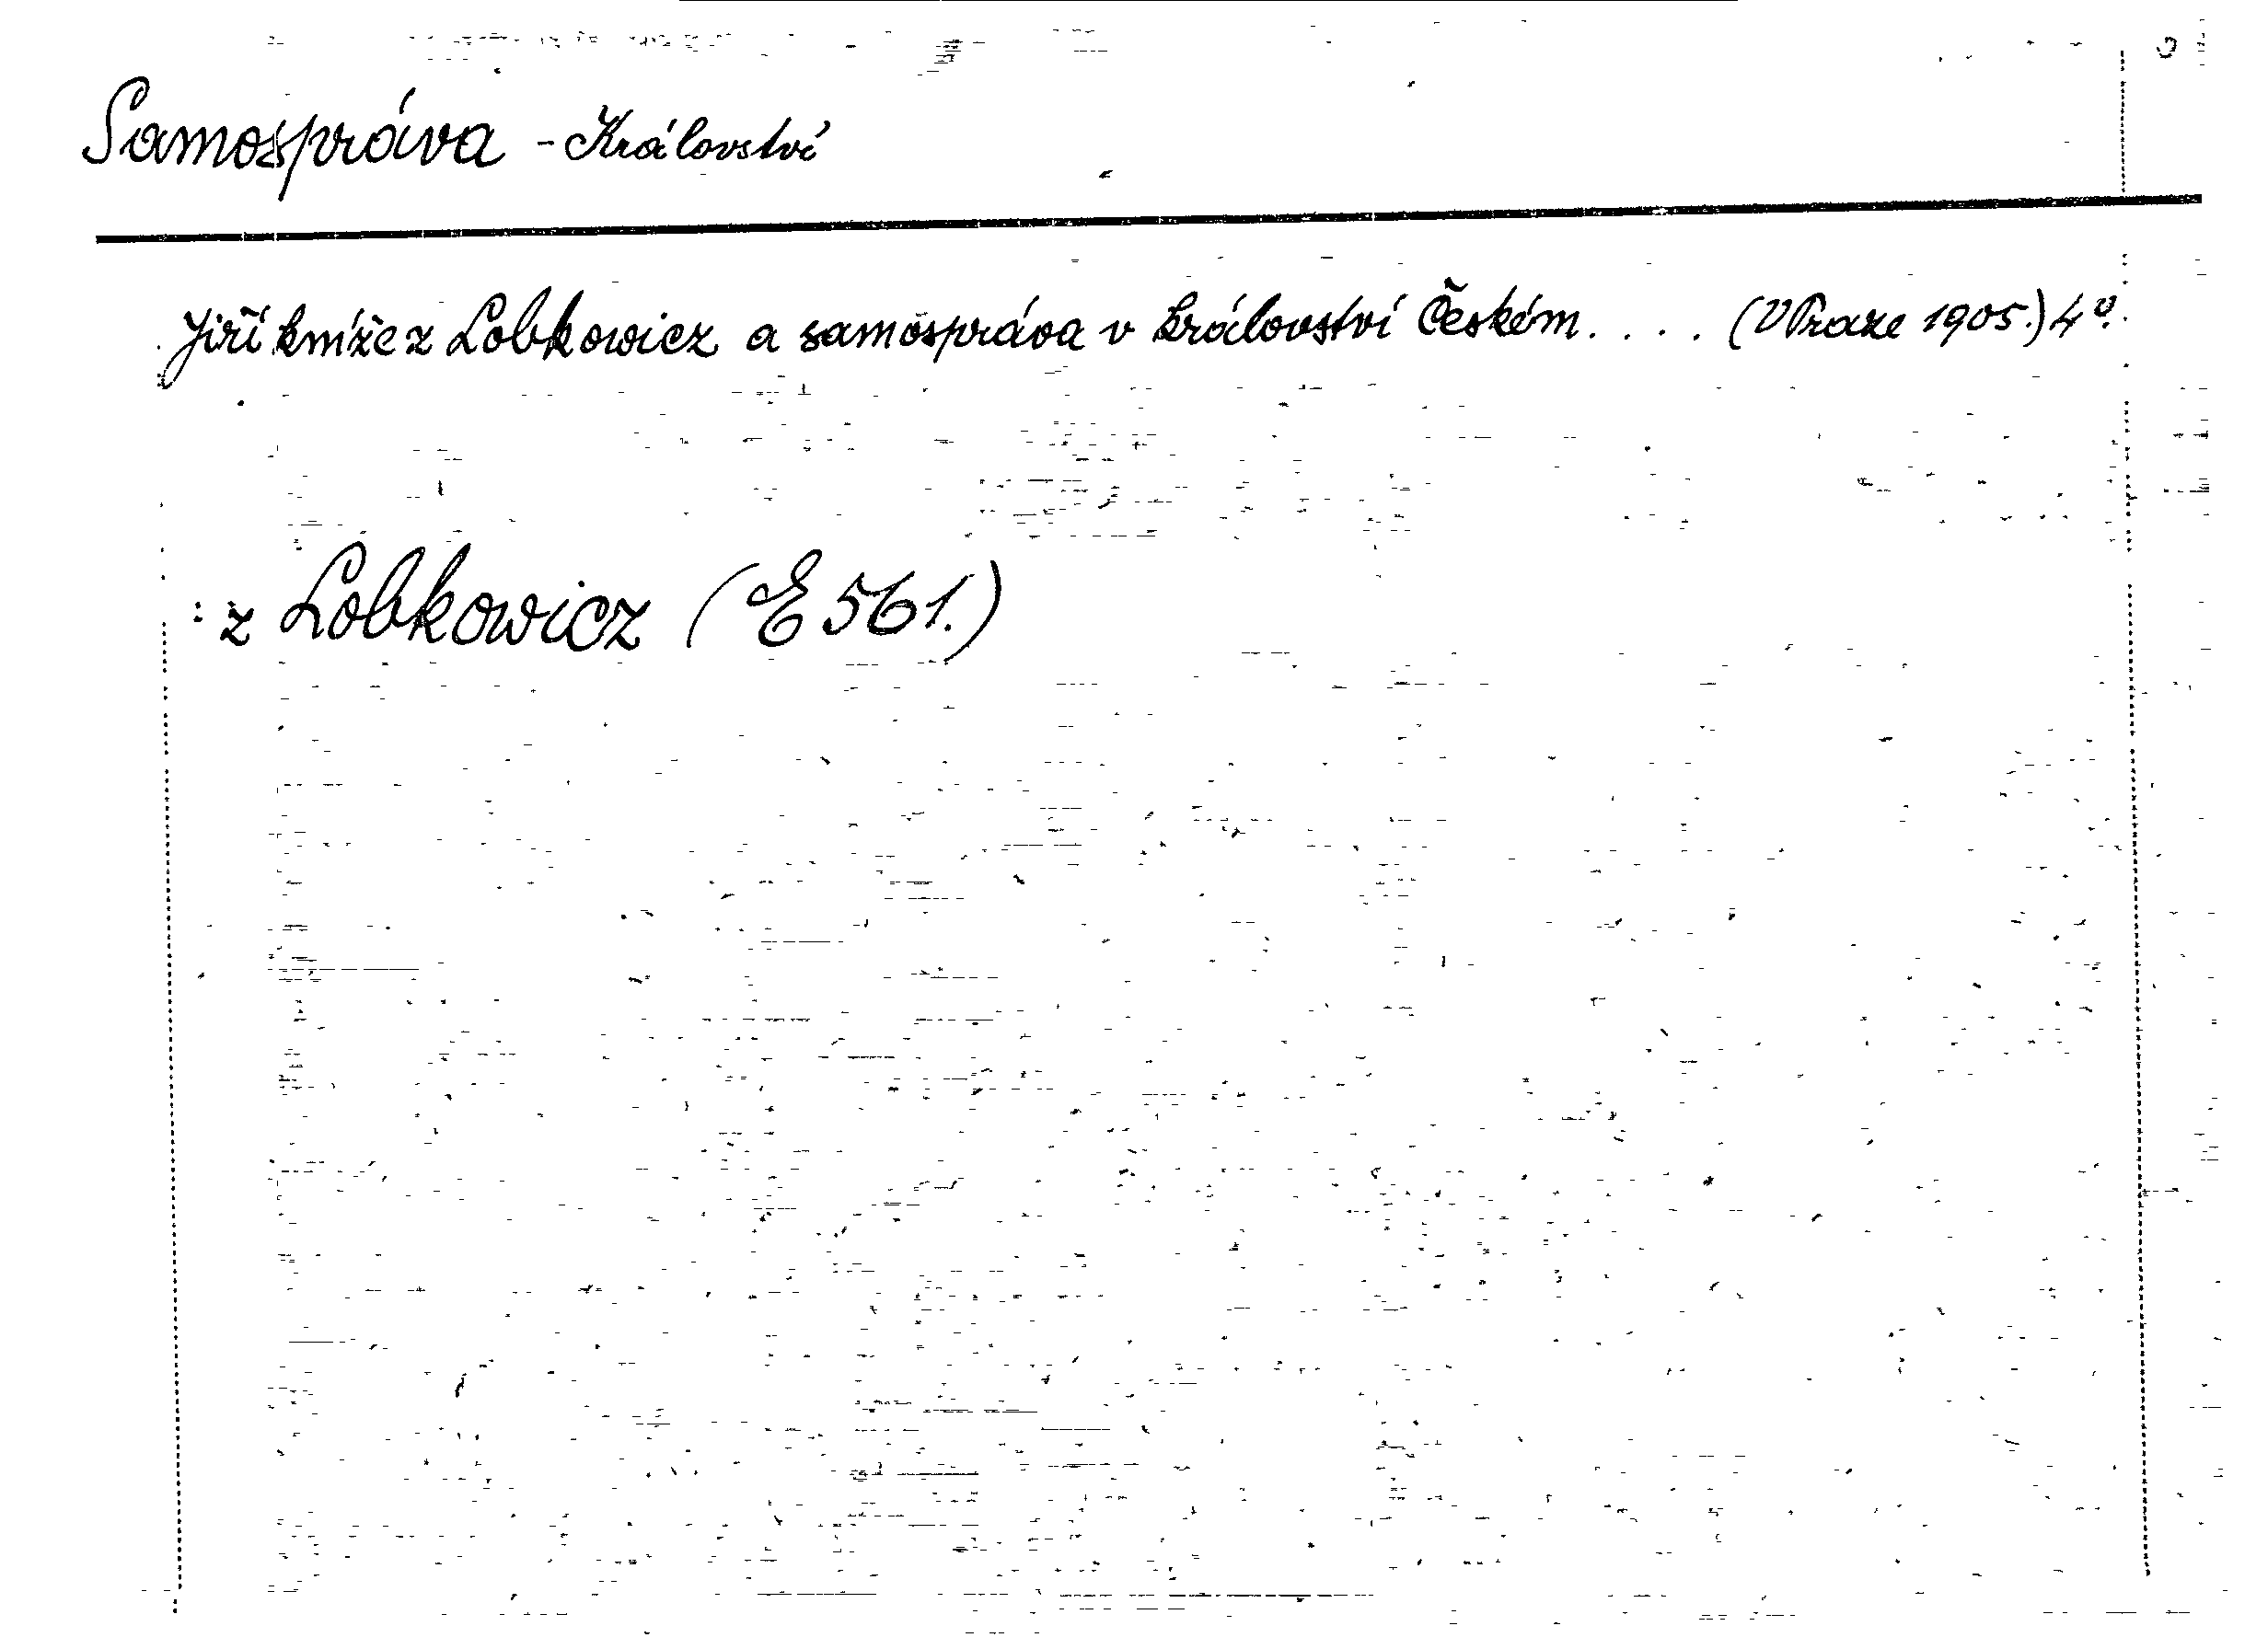 Samospráva - Království
Jiří kníže z Lobkowicz a samospráva v království Českém. . . . (V Praze 1905.) 4°.
: z Lobkowicz (E 561.)